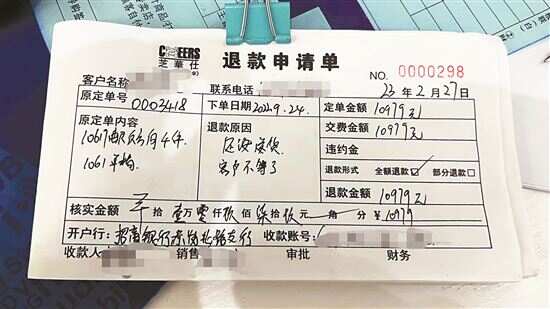 CHEERS
芝華仕
退款申请单
NO. 0000298
客户名称 联系电话 23年2月27日
原定单号 0003418 下单日期 2022.9.24. 定单金额 10979元
原定单内容 退款原因 交费金额 10979元
4件 客户不等了 违约金
1061
退款形式 全额退款☑ 部分退款□
退款金额 10979元
核实金额 拾 壹万 零仟 玖佰 柒拾 玖元 角 分 ¥10979
开户行: 招商银行 北路支行 收款账号:
收款人 销售 审批 财务